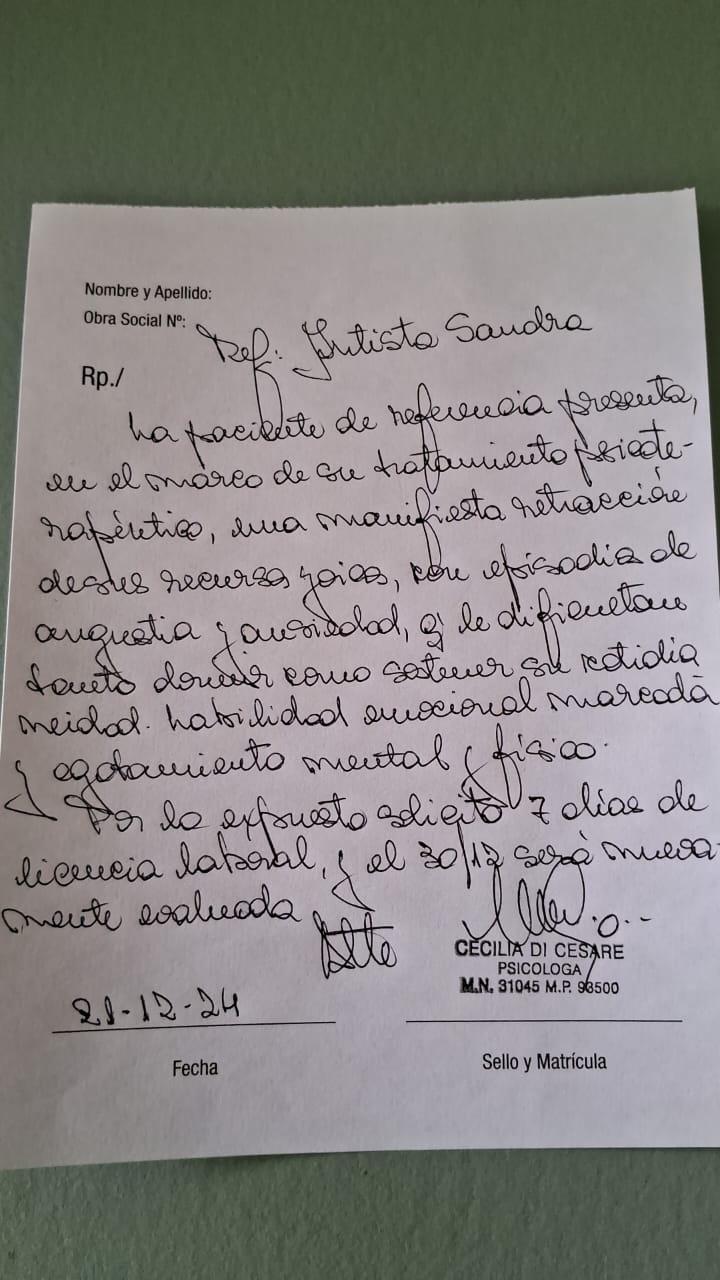 Nombre y Apellido:
Obra Social Nº:
Ref: Sandra
Rp./
La paciente de referencia presenta,
en el marco de su tratamiento psicote-
rapéutico, una manifiesta retracción
de sus recursos yoicos, con episodios de
angustia y ansiedad, q' le dificultan
tanto dormir como sostener su cotidia
neidad. labilidad emocional marcada
y agotamiento mental y físico.
Por lo expuesto solicito 7 días de
licencia laboral, y el 30/12 será nueva-
mente evaluada
Atte
CECILIA DI CESARE
PSICOLOGA
M.N. 31045 M.P. 93500
21-12-24
Fecha
Sello y Matrícula